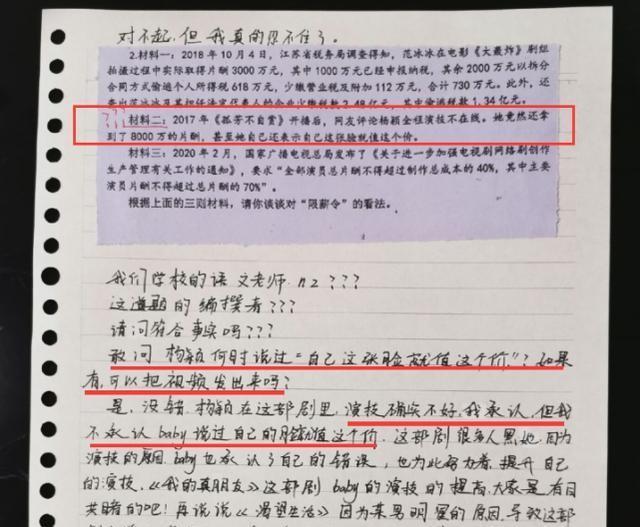 对不起,但我真的忍不住了。
2.材料一:2018年10月4日,江苏省税务局调查得知,范冰冰在电影《大轰炸》剧组
拍摄过程中实际取得片酬3000万元,其中1000万元已经申报纳税,其余2000万元以拆分
合同方式偷逃个人所得税618万元,少缴营业税及附加112万元,合计730万元。此外,还
查出范冰冰及其担任法定代表人的企业少缴税款2.48亿元,其中偷逃税款1.34亿元。
???材料二:2017年《孤芳不自赏》开播后,网友评论杨颖全程演技不在线。她竟然还拿
到了8000万的片酬,甚至她自己还表示自己这张脸就值这个价。
材料三:2020年2月,国家广播电视总局发布了《关于进一步加强电视剧网络剧创作
生产管理有关工作的通知》,要求“全部演员总片酬不得超过制作总成本的40%,其中主要
演员片酬不得超过总片酬的70%”。
根据上面的三则材料,请你谈谈对“限薪令”的看法。
我们学校的语文老师 n2???
这道题的编撰者???
请问符合事实吗???
敢问 杨颖何时说过“自己这张脸就值这个价”?如果
有,可以把视频发出来吗?
是,没错,杨颖在这部剧里,演技确实不好,我承认,但我
不承认baby说过自己的脸值这个价。这部剧很多人黑她,因为
演技的原因,baby也承认了自己的错误,也为此努力着,提升自己
的演技,《我的真朋友》这部剧baby的演技的提高,大家是有目
共睹的吧!再说说《渴望生活》因为某男明星的原因,导致这部